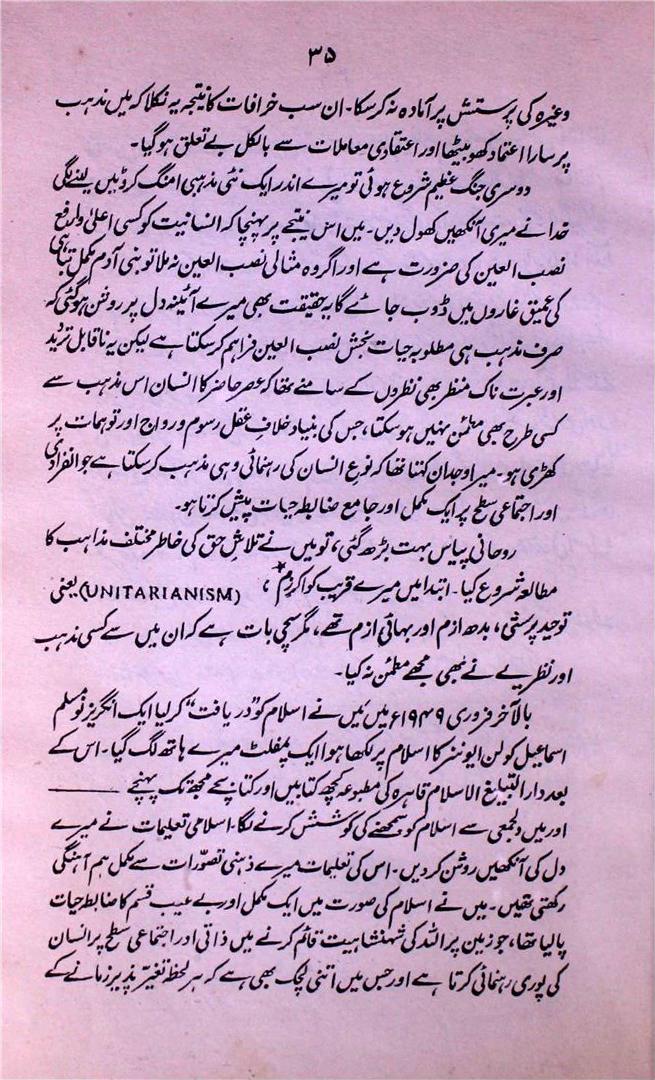 ۳۵
وغیرہ کی پرستش پر آمادہ نہ کر سکا۔ ان سب خرافات کا نتیجہ یہ نکلا کہ میں مذہب
پر سارا اعتماد کھو بیٹھا اور اعتقادی معاملات سے بالکل بے تعلق ہو گیا۔
دوسری جنگ عظیم شروع ہوئی تو میرے اندر ایک نئی مذہبی امنگ کروٹیں لینے لگی
خدا نے میری آنکھیں کھول دیں۔ میں اس نتیجے پر پہنچا کہ انسانیت کو کسی اعلیٰ وارفع
نصب العین کی ضرورت ہے اور اگر وہ مثالی نصب العین نہ ملا تو بنی آدم مکمل تباہی
کی عمیق غاروں میں ڈوب جائے گا یہ حقیقت بھی میرے آئینہ دل پر روشن ہو گئی کہ
صرف مذہب ہی مطلوبہ حیات بخش نصب العین فراہم کر سکتا ہے لیکن یہ ناقابل تردید
اور عبرت ناک منظر بھی نظروں کے سامنے تھا کہ عصر حاضر کا انسان اس مذہب سے
کسی طرح بھی مطمئن نہیں ہو سکتا، جس کی بنیاد خلافِ عقل رسوم و رواج اور توہمات پر
کھڑی ہو۔ میرا وجدان کہتا تھا کہ نوعِ انسان کی رہنمائی وہی مذہب کر سکتا ہے جو انفرادی
اور اجتماعی سطح پر ایک مکمل اور جامع ضابطہ حیات پیش کرتا ہو۔
روحانی پیاس بہت بڑھ گئی، تو میں نے تلاشِ حق کی خاطر مختلف مذاہب کا
مطالعہ شروع کیا۔ ابتدا میں میرے قریب کواکرزم*، (UNITARIANISM) یعنی
توحید پرستی، بدھ ازم اور بہائی ازم تھے، مگر سچی بات ہے کہ ان میں سے کسی مذہب
اور نظریے نے بھی مجھے مطمئن نہ کیا۔
بالآخر فروری ۱۹۴۹ء میں میں نے اسلام کو "دریافت" کر لیا ایک انگریز نو مسلم
اسماعیل کولن ایونز کا اسلام پر لکھا ہوا ایک پمفلٹ میرے ہاتھ لگ گیا۔ اس کے
بعد دار التبلیغ الاسلام قاہرہ کی مطبوعہ کچھ کتابیں اور کتابچے مجھ تک پہنچے ———
اور میں دلجمعی سے اسلام کو سمجھنے کی کوشش کرنے لگا۔ اسلامی تعلیمات نے میرے
دل کی آنکھیں روشن کر دیں۔ اس کی تعلیمات میرے ذہنی تصوّرات سے مکمل ہم آہنگی
رکھتی تھیں۔ میں نے اسلام کی صورت میں ایک مکمل اور بے عیب قسم کا ضابطہ حیات
پا لیا تھا، جو زمین پر اللہ کی شہنشاہیت قائم کرنے میں ذاتی اور اجتماعی سطح پر انسان
کی پوری رہنمائی کرتا ہے اور جس میں اتنی لچک بھی ہے کہ ہر لحظہ تغیّر پذیر زمانے کے